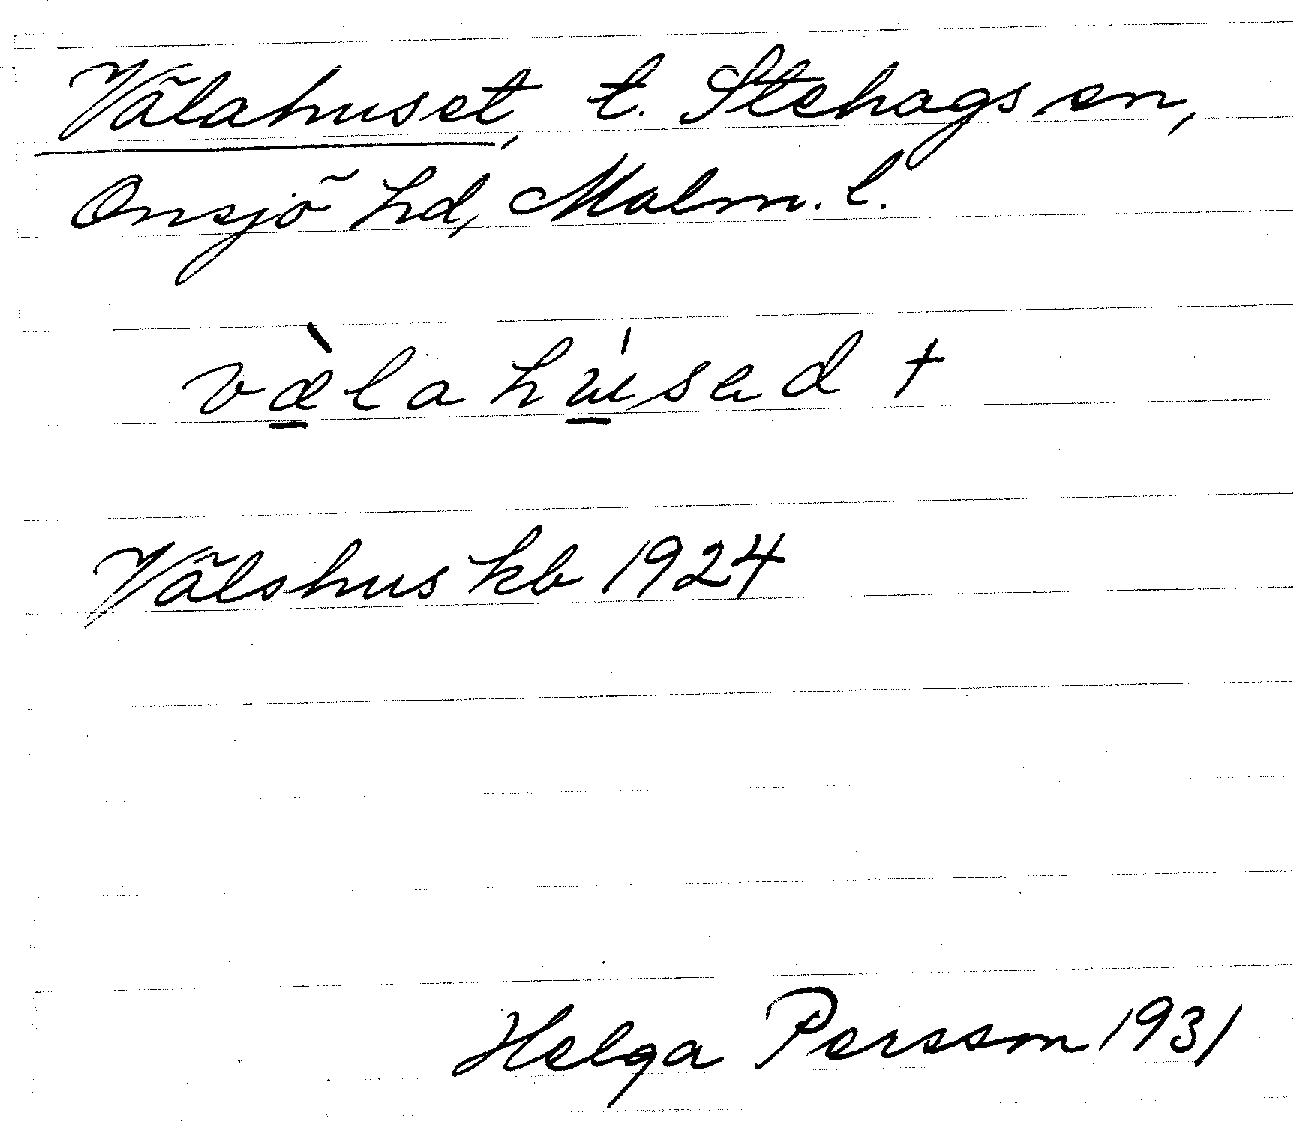 Välahuset, t. Stehags sn,
Onsjö hd, Malm. l.
væ̀lahúsed †
Välshus kb 1924
Helga Persson 1931